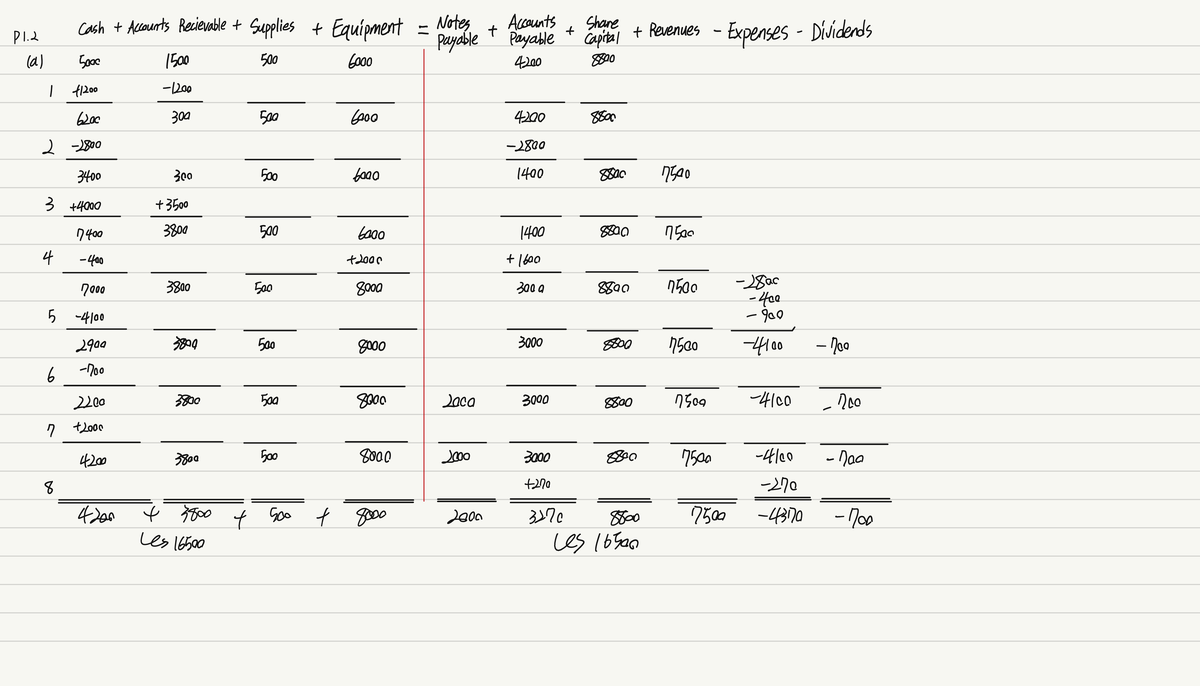 P1.2 Cash + Accounts Recievable + Supplies + Equipment = Notes Payable + Accounts Payable + Share Capital + Revenues - Expenses - Dividends
(a) 5000 1500 500 6000 4200 8800
1 +1200 -1200
6200 300 500 6000 4200 8800
2 -2800 -2800
3400 300 500 6000 1400 8800 7500
3 +4000 +3500
7400 3800 500 6000 1400 8800 7500
4 -400 +2000 +1600
7000 3800 500 8000 3000 8800 7500 -2800
-400
5 -4100 -900
2900 3800 500 8000 3000 8800 7500 -4100 -700
6 -700
2200 3800 500 8000 2000 3000 8800 7500 -4100 -700
7 +2000
4200 3800 500 8000 2000 3000 8800 7500 -4100 -700
8 +270 -270
4200 + 3800 + 500 + 8000 2000 3270 8800 7500 -4370 -700
16500 16500